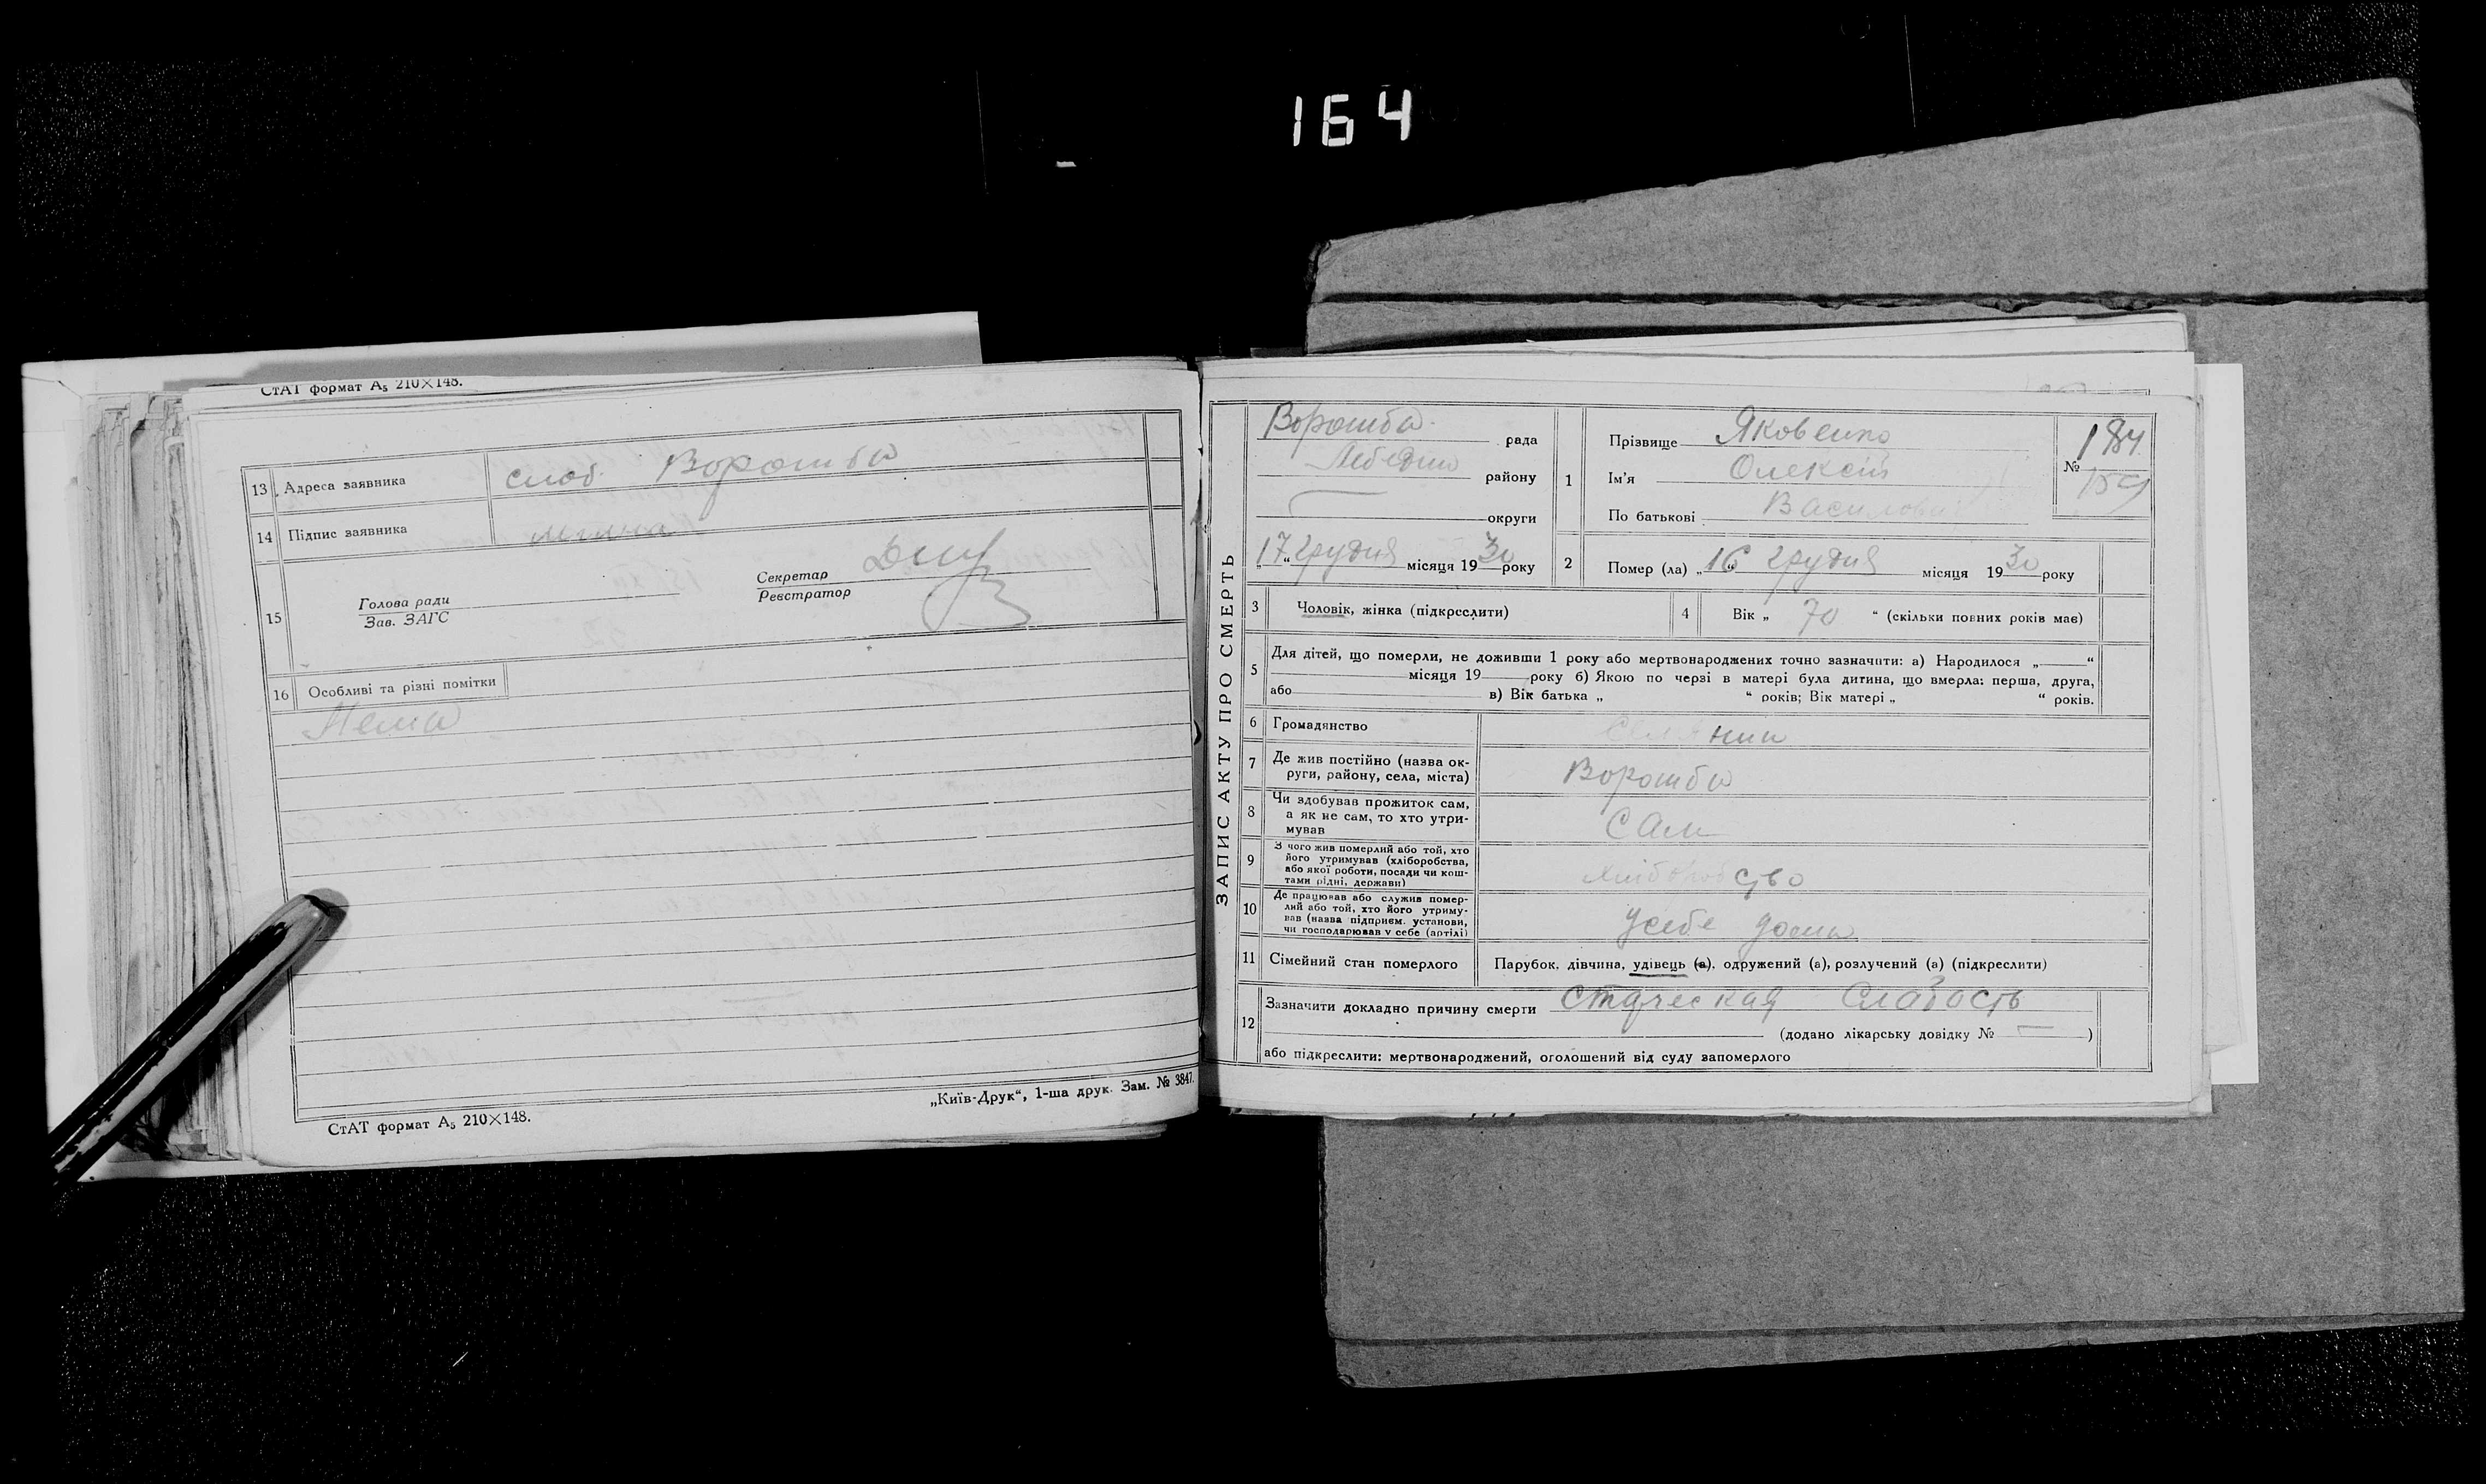 164
СтАТ формат А₅ 210×148.
13 Адреса заявника слоб. Ворожба
14 Підпис заявника
15 Голова ради
Зав. ЗАГС
Секретар
Реєстратор
16 Особливі та різні помітки
Нема
„Київ-Друк“, 1-ша друк. Зам. № 3847.
СтАТ формат А₅ 210×148.
ЗАПИС АКТУ ПРО СМЕРТЬ
Ворожба рада
Лебедин району
округи
„17“ грудня місяця 1930 року
1 Прізвище Яковенко
Ім'я Олексій
По батькові Василович
№ 184
159
2 Помер (ла) „16“ грудня місяця 1930 року
3 Чоловік, жінка (підкреслити)
4 Вік „ 70 “ (скільки повних років має)
5 Для дітей, що померли, не доживши 1 року або мертвонароджених точно зазначити: а) Народилося „ “
місяця 19 року б) Якою по черзі в матері була дитина, що вмерла: перша, друга,
або в) Вік батька „ “ років; Вік матері „ “ років.
6 Громадянство Селянин
7 Де жив постійно (назва ок-
руги, району, села, міста) Ворожба
8 Чи здобував прожиток сам,
а як не сам, то хто утри-
мував сам
9 З чого жив померлий або той, хто
його утримував (хліборобства,
або якої роботи, посади чи кош-
тами рідні, держави) хліборобство
10 Де працював або служив помер-
лий або той, хто його утриму-
вав (назва підприєм. установи,
чи господарював у себе (артілі) усебе дома
11 Сімейний стан померлого Парубок, дівчина, удівець (а), одружений (а), розлучений (а) (підкреслити)
12 Зазначити докладно причину смерти старческая Слабость
(додано лікарську довідку № — )
або підкреслити: мертвонароджений, оголошений від суду запомерлого